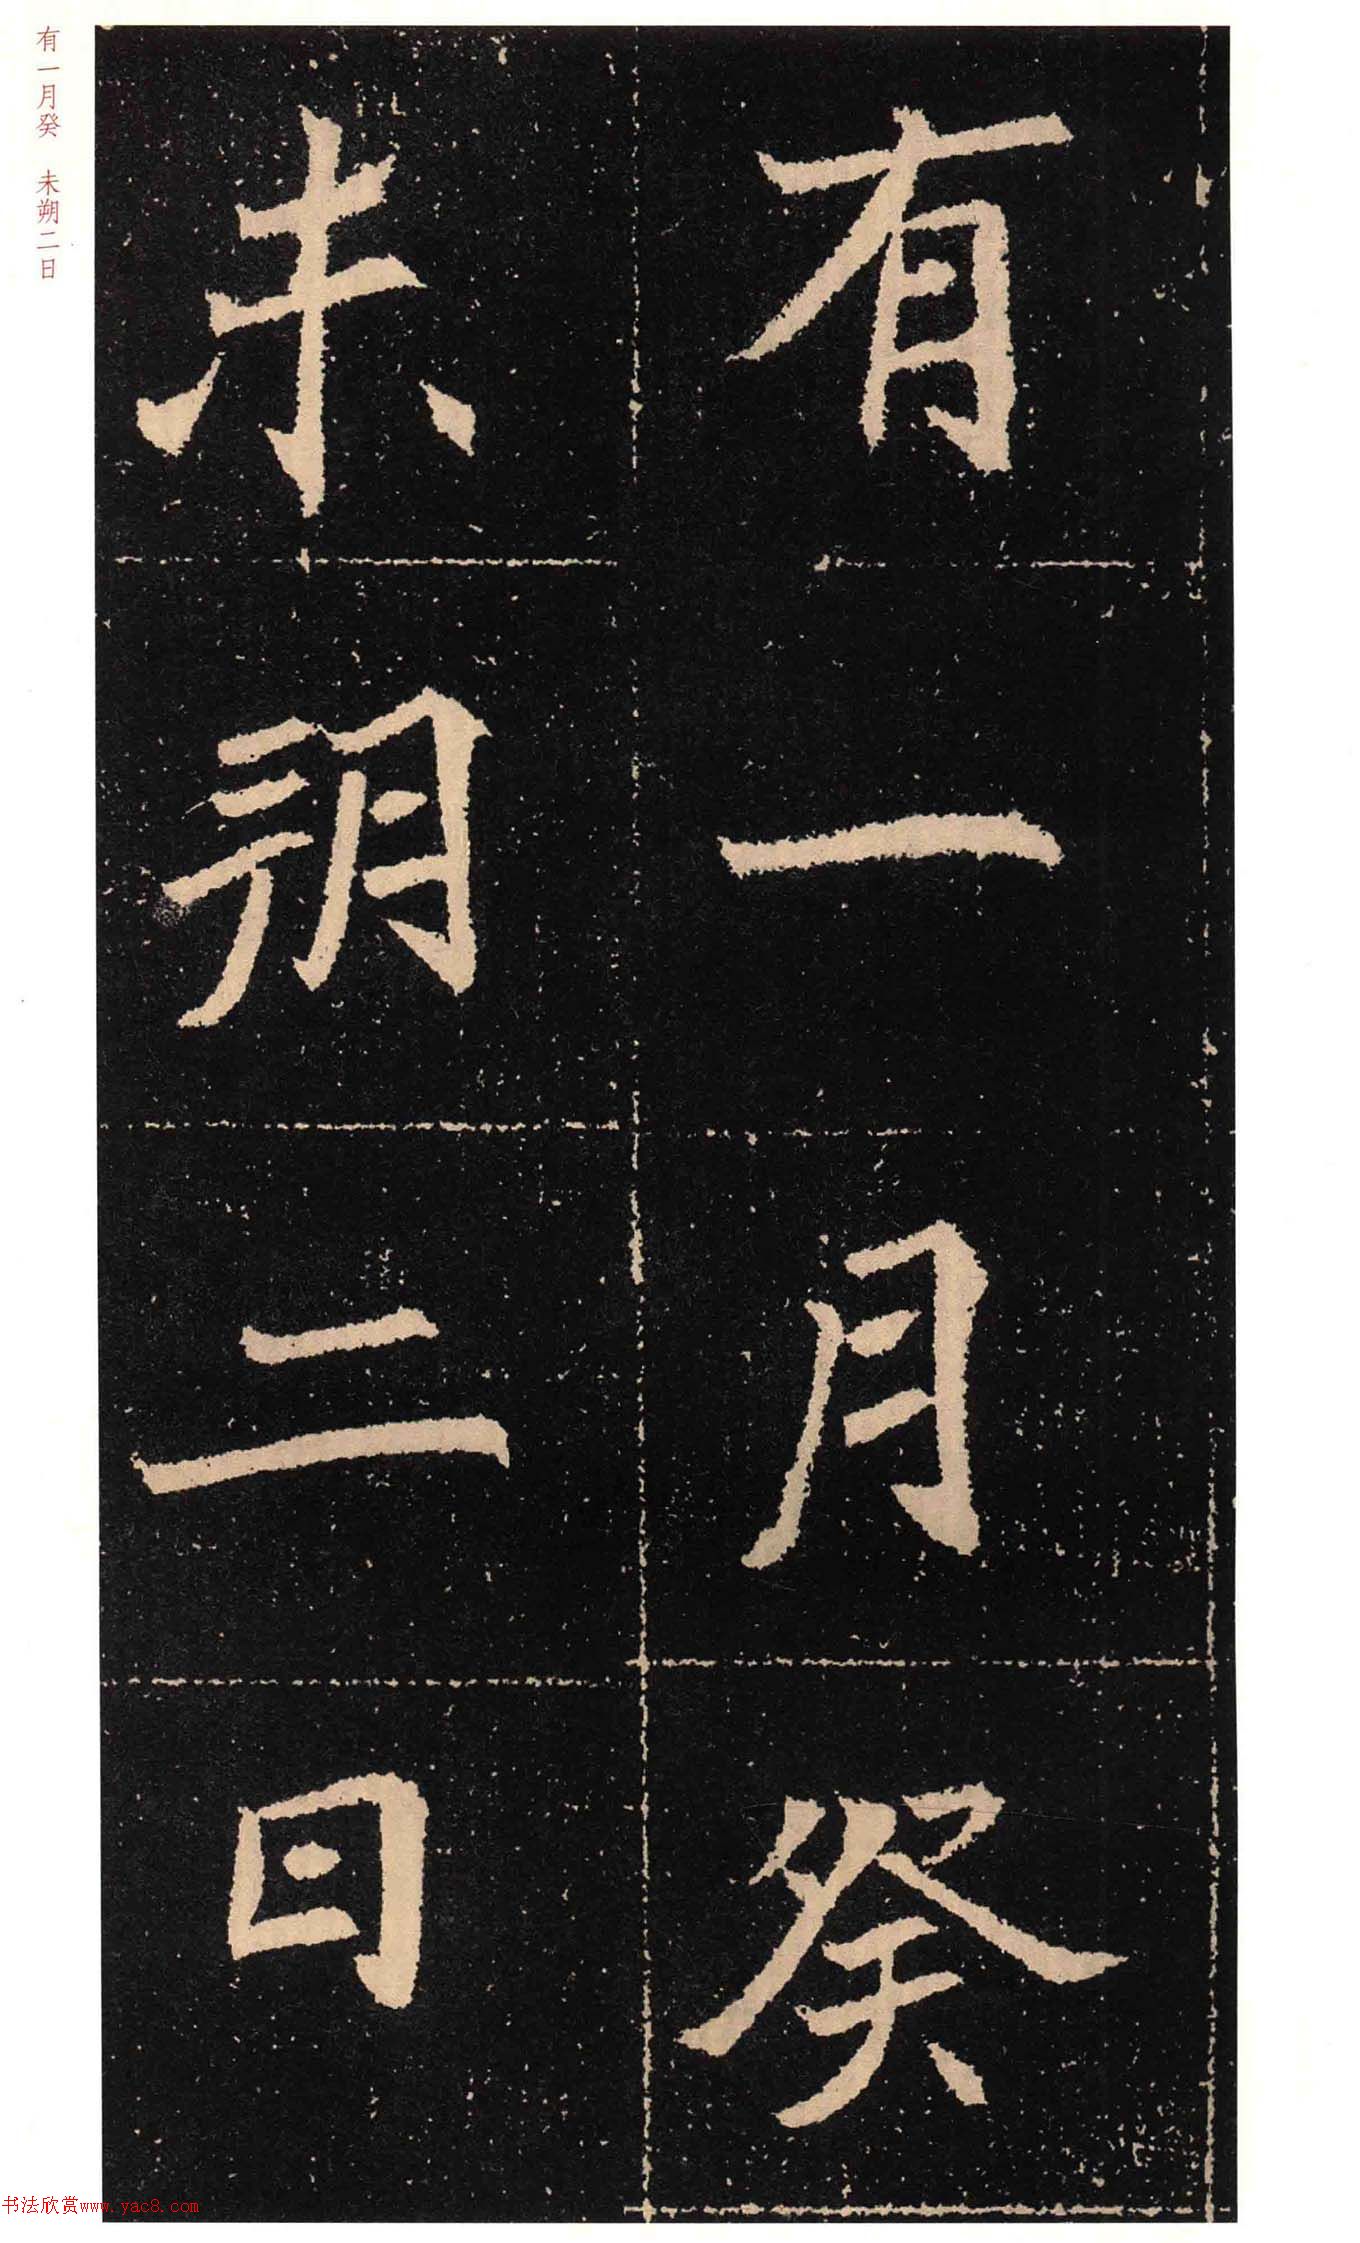 有一月癸
未朔二日
有一月癸　未朔二日
书法欣赏www.yac8.com